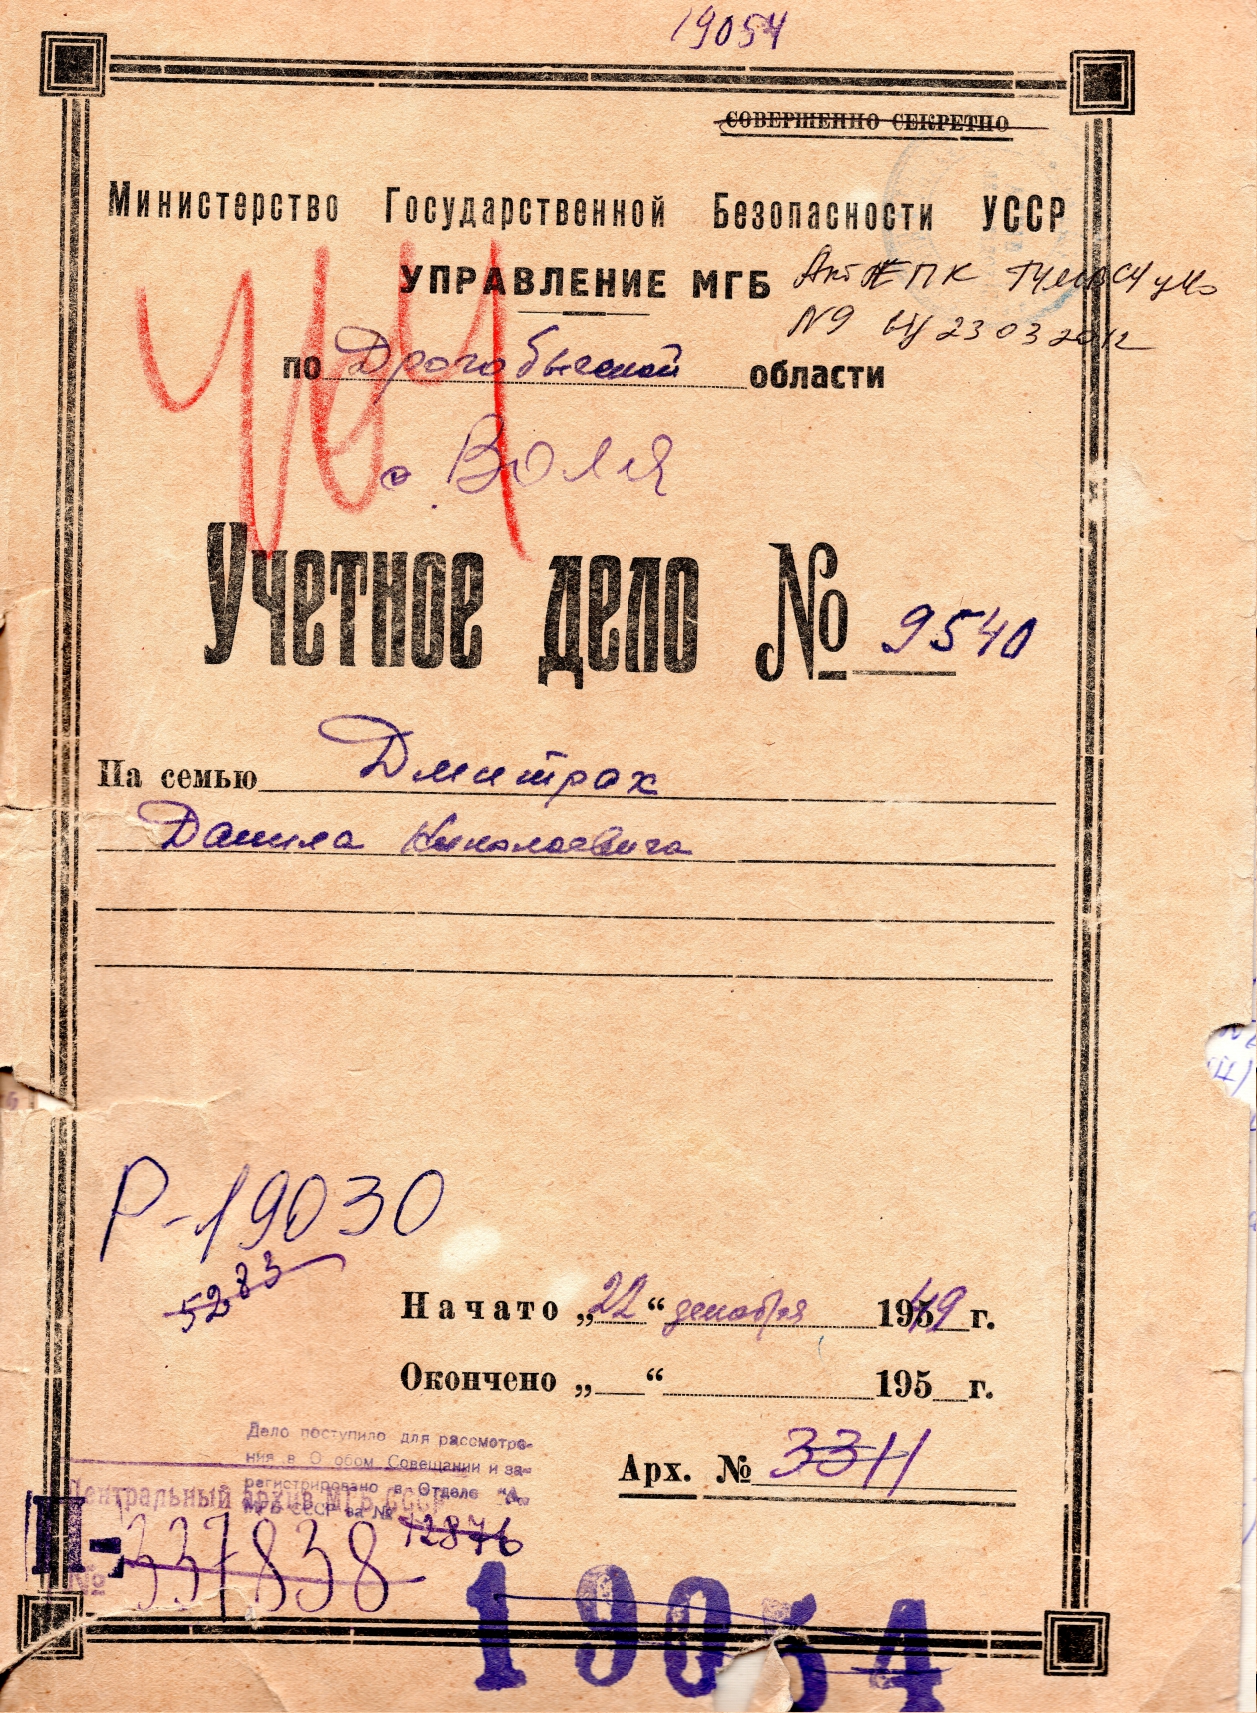 19054
СОВЕРШЕННО СЕКРЕТНО
Министерство Государственной Безопасности УССР
УПРАВЛЕНИЕ МГБ
Акт ЕПК
№9 23 03 2012
по Дрогобычской области
с. Воля
Учетное дело № 9540
На семью Дмитрах
Данила Николаевича
Р-19030
5283
Начато „22“ декабря 1949 г.
Окончено „ “ 195 г.
Дело поступило для рассмотре-
ния в О обом Совещании и за-
регистрировано в Отделе "А"
МГБ СССР за № 12876
Арх. № 3311
Центральный архив МГБ СССР
П-337838
№
19054